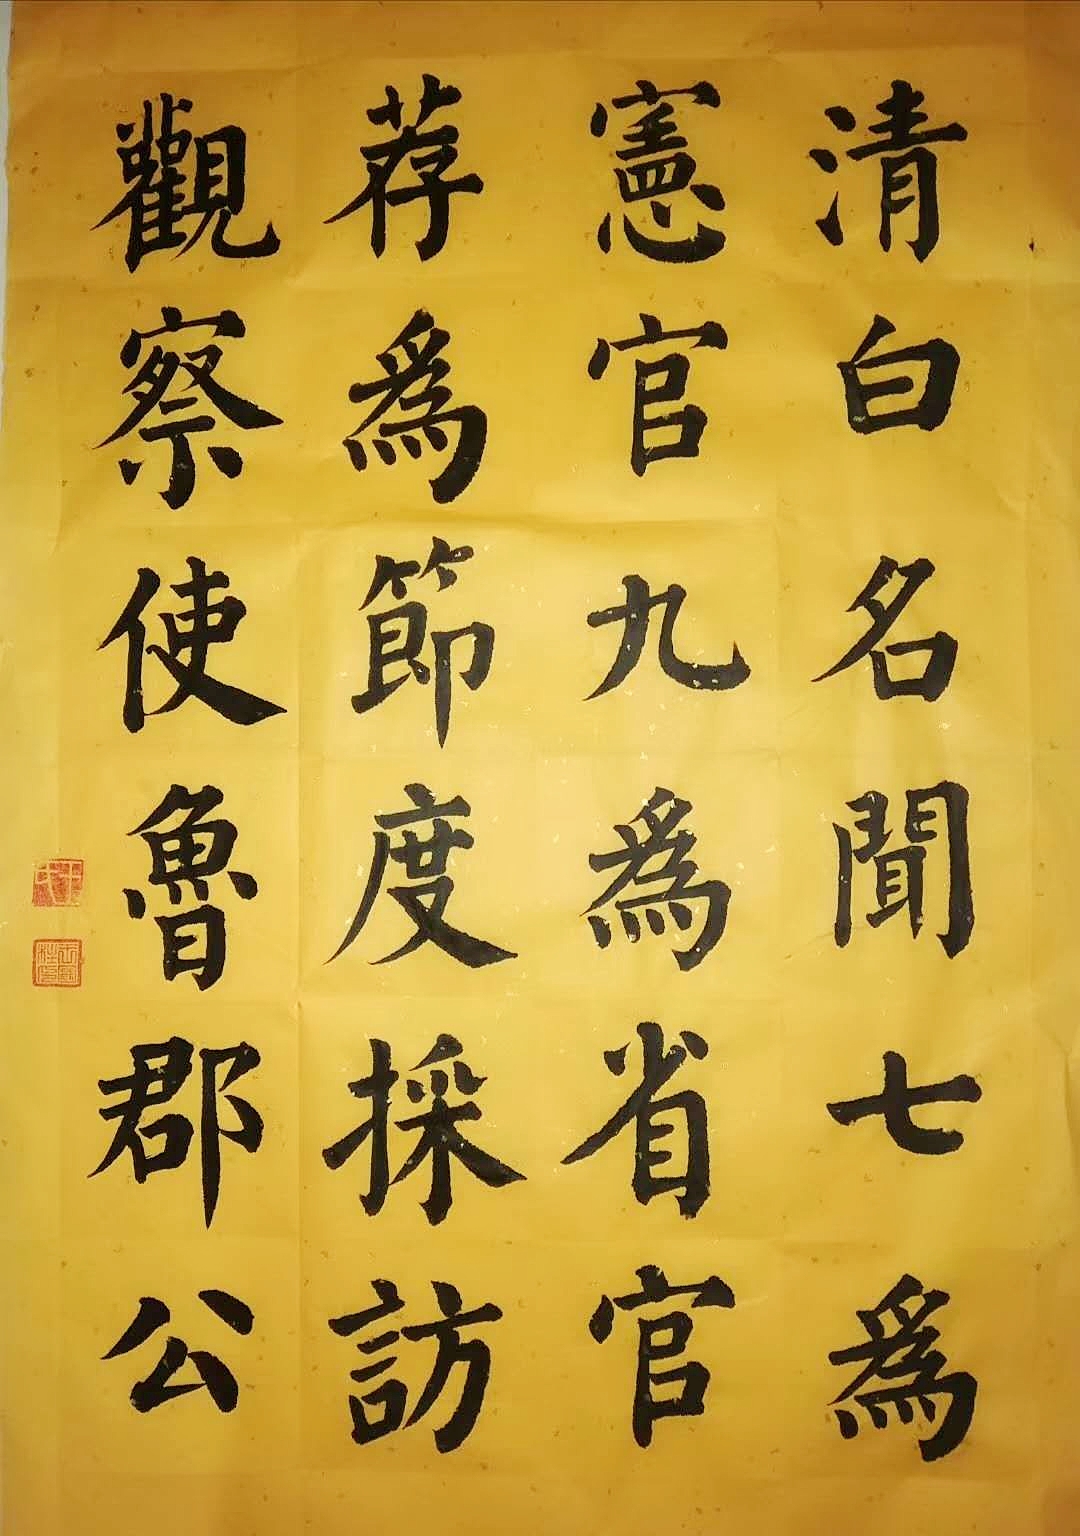 清白名聞七為
憲官九為省官
荐為節度採訪
觀察使魯郡公